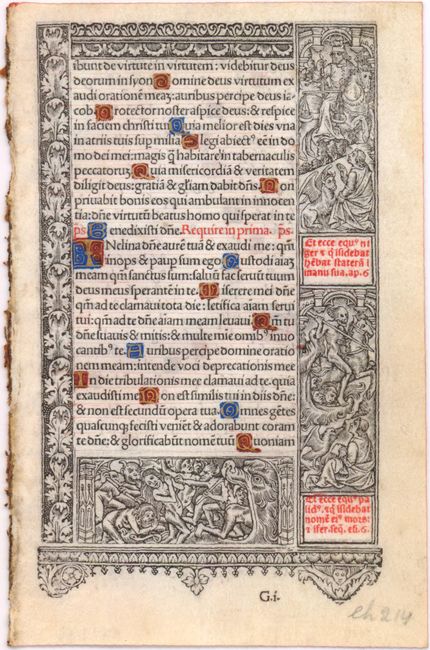 ibunt de virtute in virtutem: videbitur deus
deorum in syon Domine deus virtutum ex
audi orationē meaȝ: auribus percipe deus ia-
cob. Protector noster aspice deus: & respice
in faciem christi tui Quia melior est dies vna
in atriis tuis sup milia Elegi abiectꝰ eē in do
mo dei mei: magis q̄ habitare in tabernaculis
peccatorum. Quia misericordiā & veritatem
diligit deus: gratiā & gl̄iam dabit dn̄s. Non
priuabit bonis eos qui ambulant in innocen
tia: dn̄e virtutū beatus homo qui sperat in te
p̄s. Benedixisti dn̄e. Require in prima. p̄s.
INclina dn̄e aurē tuā & exaudi me: qm̄
inops & paup sum ego Custodi aīaȝ
meam qm̄ sanctus sum: saluū fac seruū tuum
deus meus sperantē in te. Miserere mei dn̄e
qm̄ ad te clamaui tota die: letifica aīam serui
tui: qm̄ ad te dn̄e aīam meam leuaui. Qm̄ tu
dn̄e suauis & mitis: & multe mīe omībꝰ inuo
cantibꝰ te. Auribus percipe domine oratio
nem meam: intende voci deprecationis mee
In die tribulationis mee clamaui ad te. quia
exaudisti me Non est similis tui in diis dn̄e:
& non est secundū opera tua. Omnes gētes
quascunq; fecisti veniēt & adorabunt coram
te dn̄e: & glorificabūt nomē tuū Quoniam
Et ecce equꝰ ni
ger & q̄ īsidebat
hēbat staterā ī
manu sua. ap. 6
Et ecce equꝰ pa
lidꝰ. & q̄ īsidebat
nomē eiꝰ mors:
& īfer. seq. eū. 6.
G.i.
ch 214